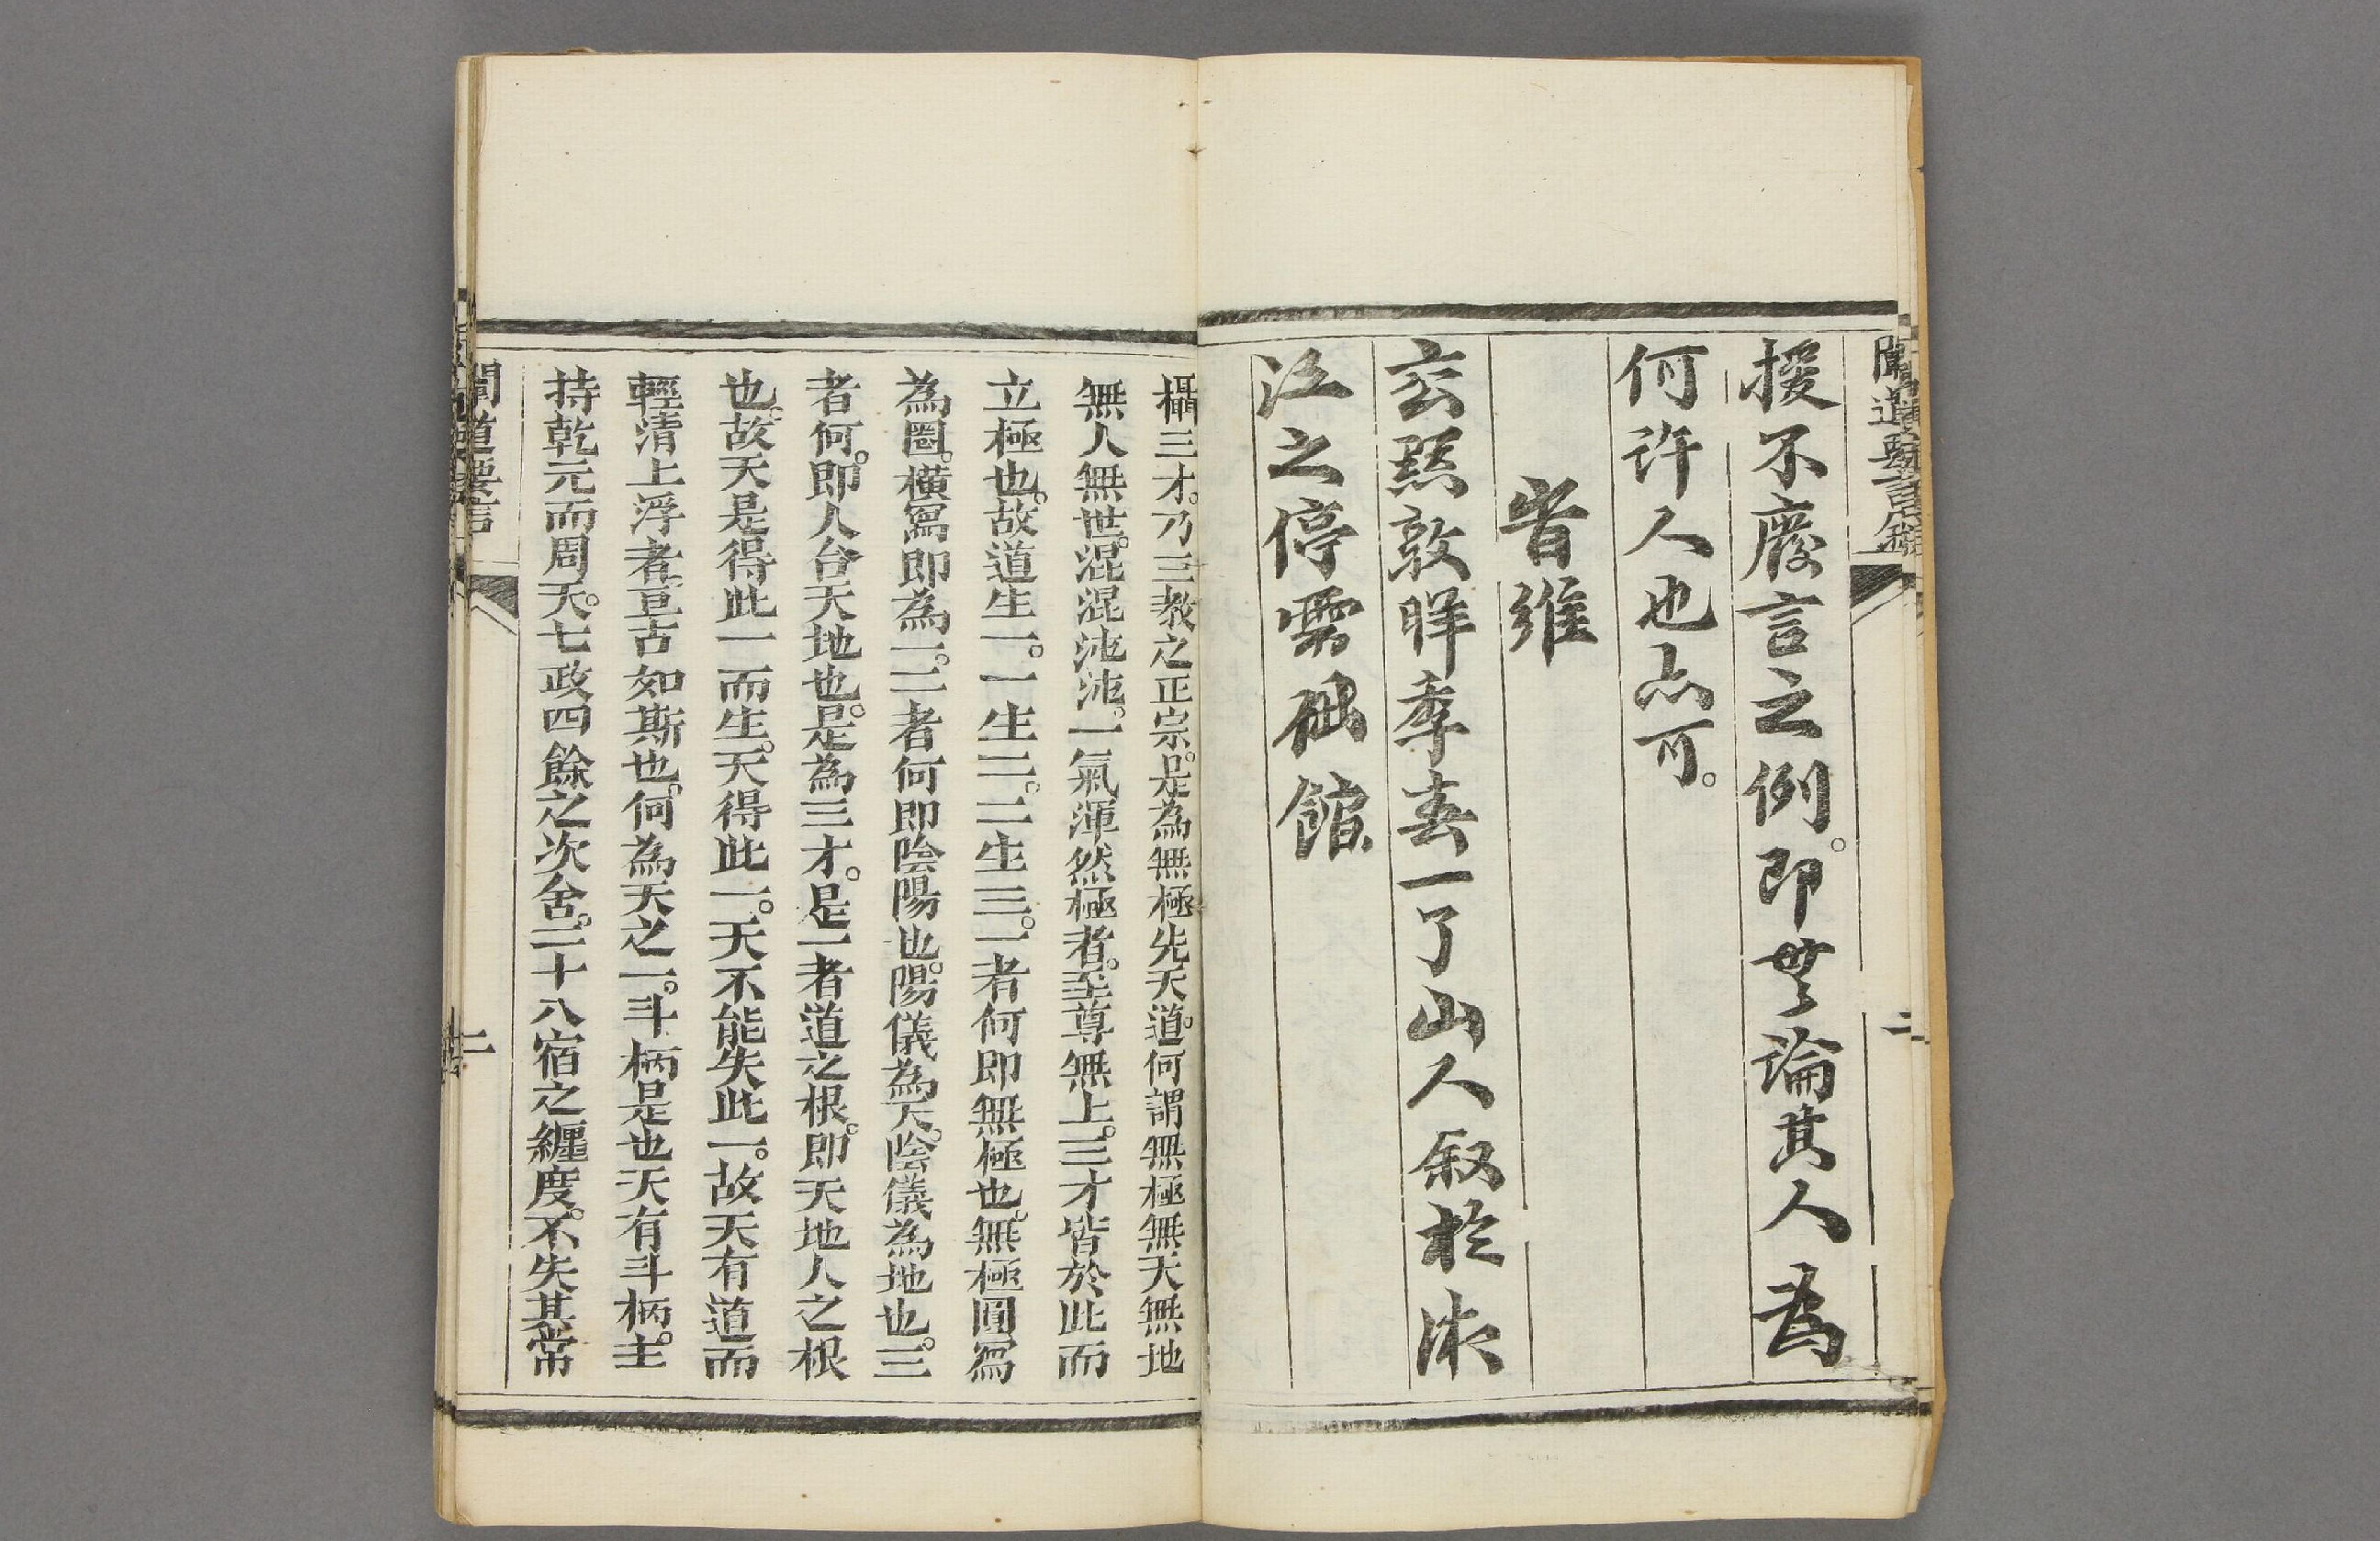 援不廢言之例。即無論其人為
何許人也亦可。
昔維
玄黓敦牂季春一了山人叙於沭
江之停雲仙館
二
攝三才。乃三教之正宗。是為無極先天道。何謂無極無天無地
無人無世。混混沌沌。一氣渾然極者。至尊無上。三才皆於此而
立極也。故道生一。一生二。二生三。一者何即無極也。無極圓寫
為圈。橫寫即為一。二者何即陰陽也。陽儀為天。陰儀為地也。三
者何。即人台天地也。是為三才。是一者道之根。即天地人之根
也。故天是得此一而生。天得此一。天不能失此一。故天有道而
輕清上浮者。亘古如斯也。何為天之一。斗柄是也天有斗柄。主
持乾元而周天。七政四餘之次舍。二十八宿之纏度。不失其常
聞道要言
二